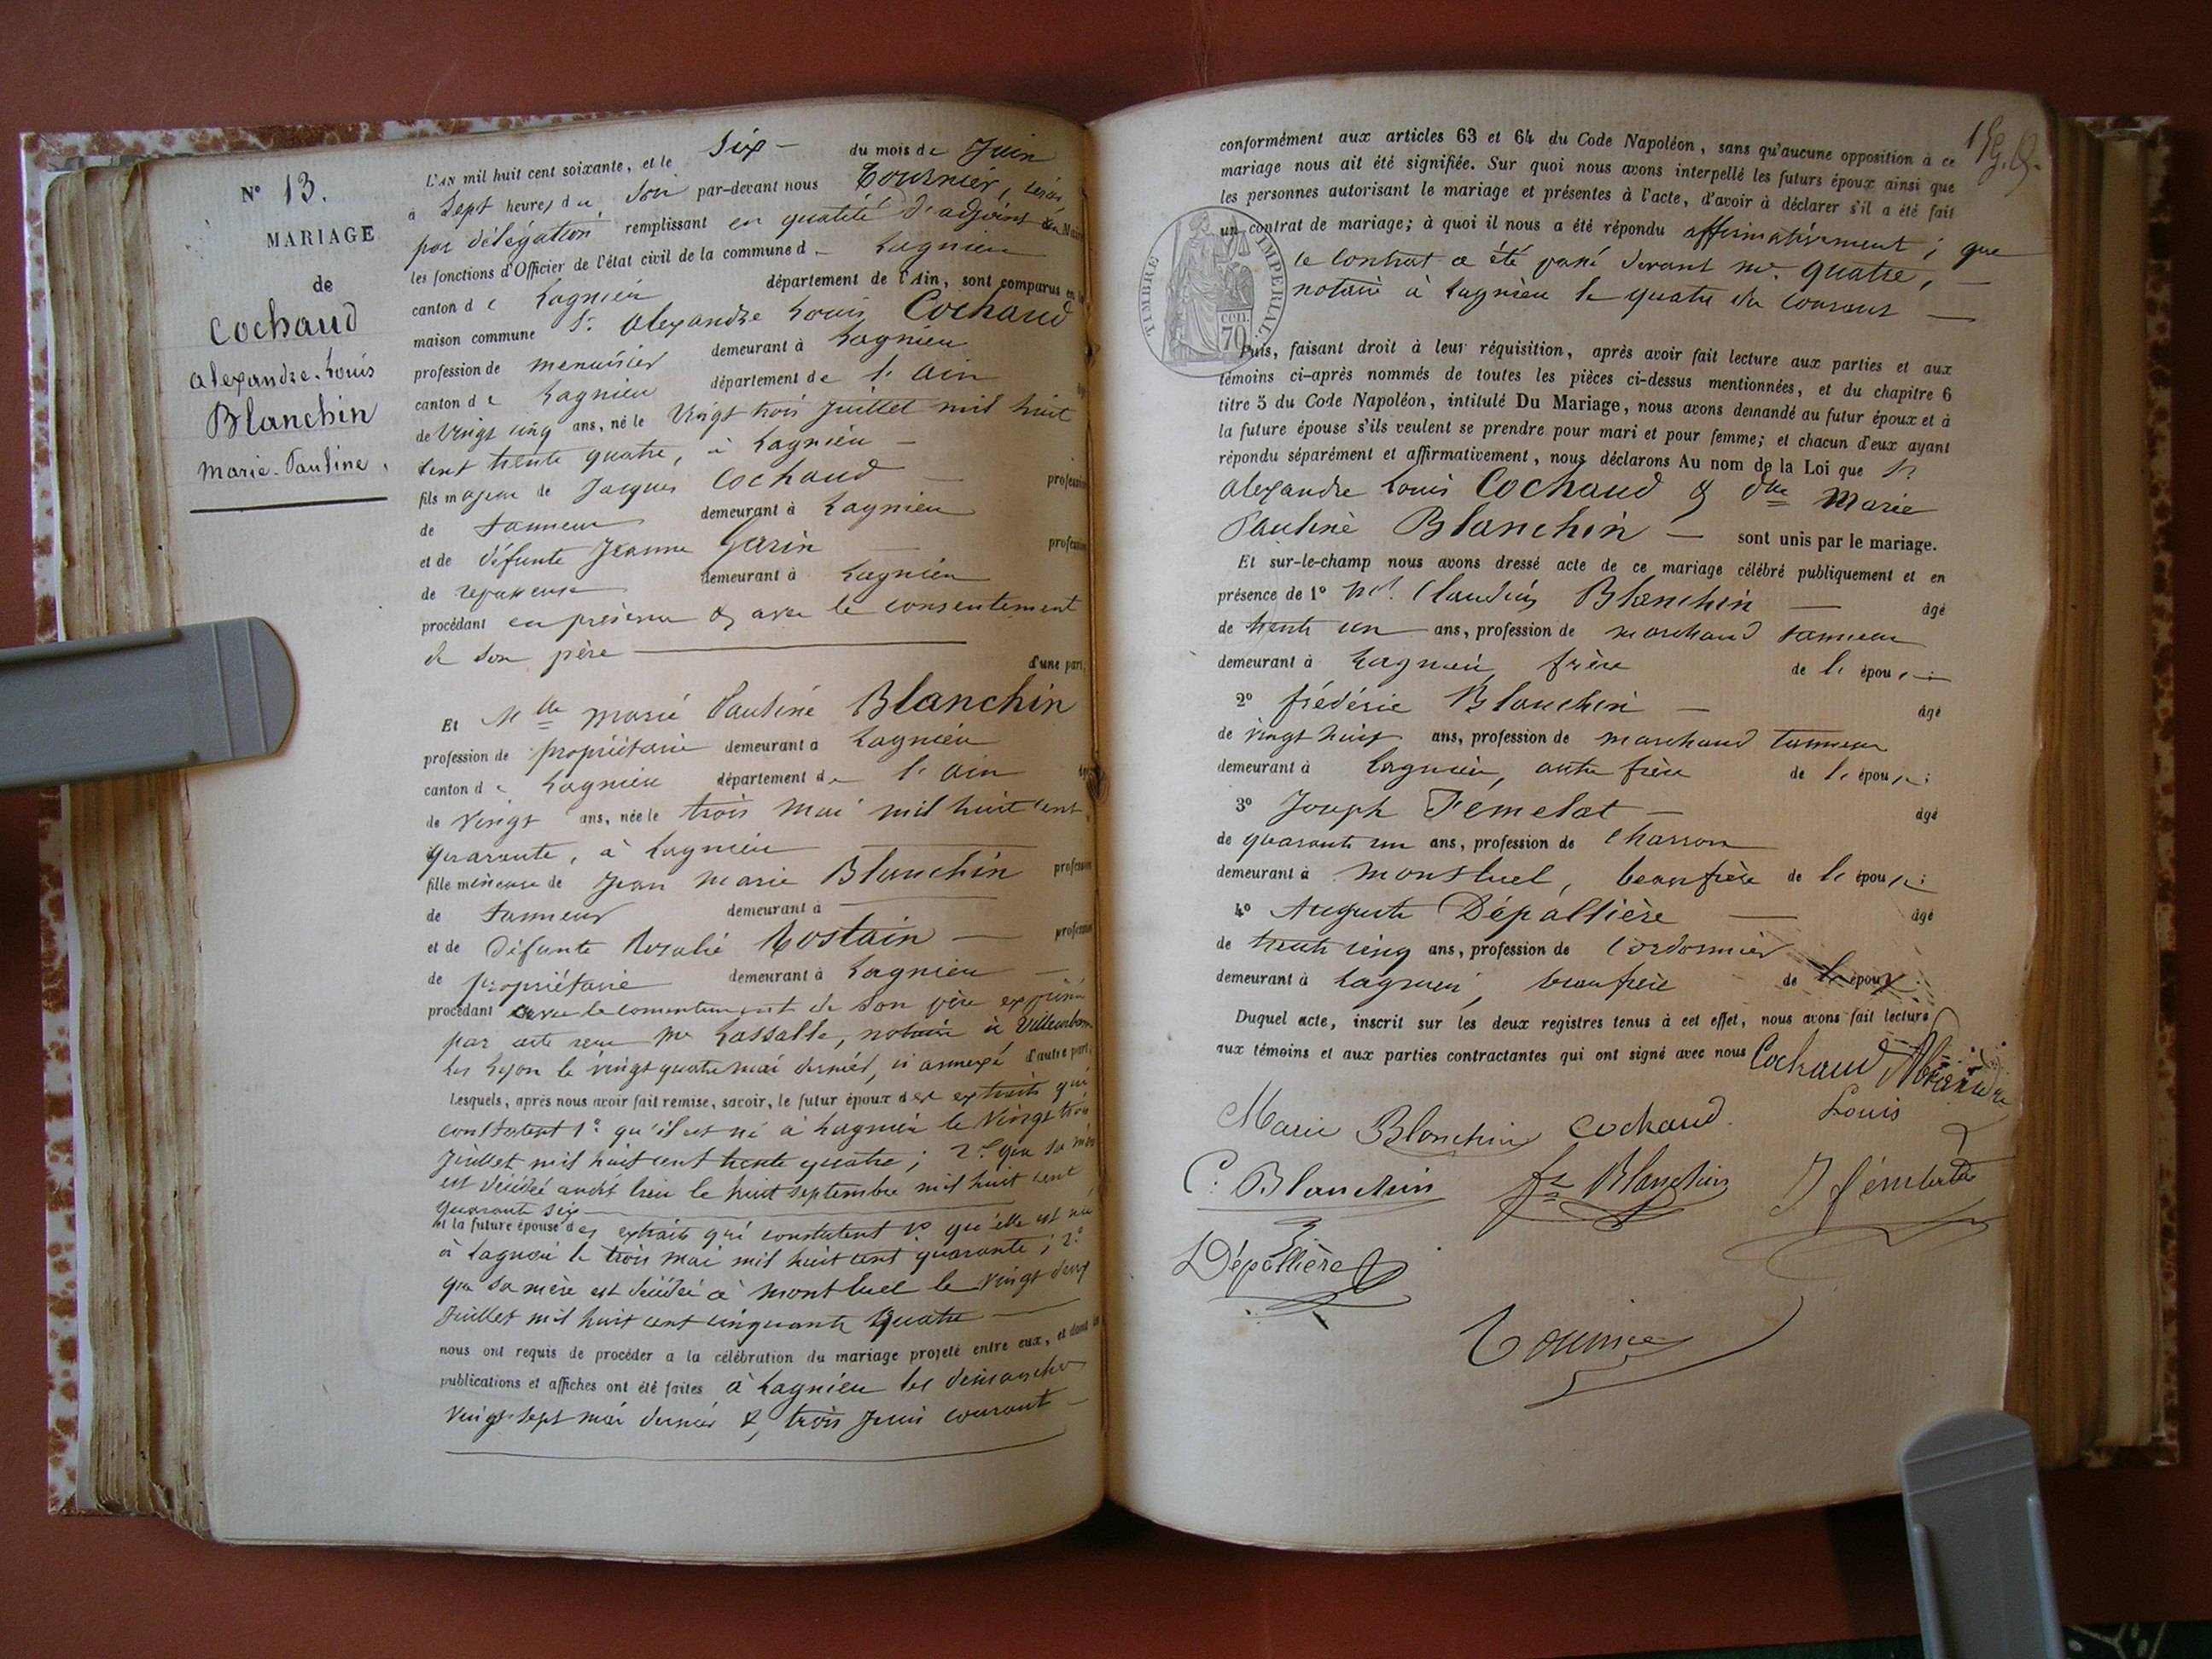 N° 13.
MARIAGE
de
Cochaud
Alexandre-Louis
Blanchin
Marie-Pauline.
L'AN mil huit cent soixante, et le Six du mois de Juin
à Sept heures du Soir par-devant nous Tournier,
par délégation remplissant en qualité d'adjoint
les fonctions d'Officier de l'état civil de la commune de Lagnieu
canton de Lagnieu département de l'Ain, sont comparus en la
maison commune Sr. Alexandre Louis Cochaud
profession de menuisier demeurant à Lagnieu
canton de Lagnieu département de l'Ain âgé
de Vingt cinq ans, né le Vingt trois Juillet mil huit
cent trente quatre, à Lagnieu —
fils majeur de Jacques Cochaud — profession
de tanneur demeurant à Lagnieu
et de défunte Jeanne Garin — profession
de repasseuse demeurant à Lagnieu
procédant en présence & avec le consentement
de son père —
d'une part,
Et Mlle Marie Pauline Blanchin
profession de propriétaire demeurant à Lagnieu
canton de Lagnieu département de l'Ain âgé
de Vingt ans, née le trois Mai mil huit cent
quarante, à Lagnieu —
fille mineure de Jean Marie Blanchin profession
de tanneur demeurant à —
et de défunte Rosalie Rostain — profession
de propriétaire demeurant à Lagnieu —
procédant avec le consentement de son père exprimé
par acte reçu Me Lassalle, notaire à Villeurbanne
les Lyon le vingt quatre mai dernier, ci annexé d'autre part,
Lesquels, après nous avoir fait remise, savoir, le futur époux des extraits qui
constatent 1° qu'il est né à Lagnieu le Vingt trois
Juillet mil huit cent trente quatre; 2° que sa mère
est décédée audit lieu le huit septembre mil huit cent
quarante six —
et la future épouse des extraits qui constatent 1° qu'elle est née
à Lagnieu le trois mai mil huit cent quarante; 2°
que sa mère est décédée à Montluel le Vingt deux
Juillet mil huit cent cinquante quatre —
nous ont requis de procéder à la célébration du mariage projeté entre eux, et dont les
publications et affiches ont été faites à Lagnieu les dimanches
vingt-sept mai dernier &, trois Juin courant —
conformément aux articles 63 et 64 du Code Napoléon, sans qu'aucune opposition à ce
mariage nous ait été signifiée. Sur quoi nous avons interpellé les futurs époux ainsi que
les personnes autorisant le mariage et présentes à l'acte, d'avoir à déclarer s'il a été fait
un contrat de mariage; à quoi il nous a été répondu affirmativement; que
le contrat a été passé devant me. Quatre, —
notaire à Lagnieu le quatre du courant —
TIMBRE IMPERIAL.
70 cen.
Puis, faisant droit à leur réquisition, après avoir fait lecture aux parties et aux
témoins ci-après nommés de toutes les pièces ci-dessus mentionnées, et du chapitre 6
titre 5 du Code Napoléon, intitulé Du Mariage, nous avons demandé au futur époux et à
la future épouse s'ils veulent se prendre pour mari et pour femme; et chacun d'eux ayant
répondu séparément et affirmativement, nous déclarons Au nom de la Loi que Sr
Alexandre Louis Cochaud & Dlle Marie
Pauline Blanchin — sont unis par le mariage.
Et sur-le-champ nous avons dressé acte de ce mariage célébré publiquement et en
présence de 1° Claudius Blanchin — âgé
de trente un ans, profession de marchand tanneur
demeurant à Lagnieu, frère de l'épouse;
2° frédéric Blanchin — âgé
de vingt huit ans, profession de marchand tanneur
demeurant à Lagnieu, autre frère de l'épouse;
3° Joseph Femelat — âgé
de quarante un ans, profession de Charron
demeurant à Montluel, beaufrère de l'épouse;
4° Auguste Dépallière — âgé
de trente cinq ans, profession de Cordonnier
demeurant à Lagnieu, beaufrère de l'époux.
Duquel acte, inscrit sur les deux registres tenus à cet effet, nous avons fait lecture
aux témoins et aux parties contractantes qui ont signé avec nous Cochaud Alexandre
Louis
Marie Blanchin Cochaud.
C. Blanchin fc Blanchin J femelat
Dépallière
Tournier